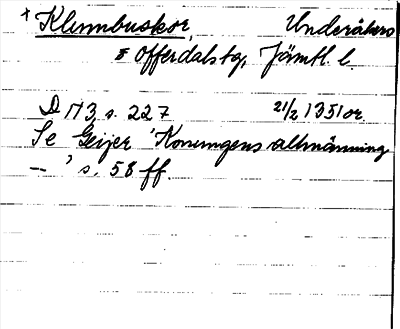 + Klimbuskor, Underåkers
s Offerdals tg, Jämtl. l.
D 113, s. 227 21/2 1351 or.
Se Geijer "Konungens allmänning
— " s. 58 ff.